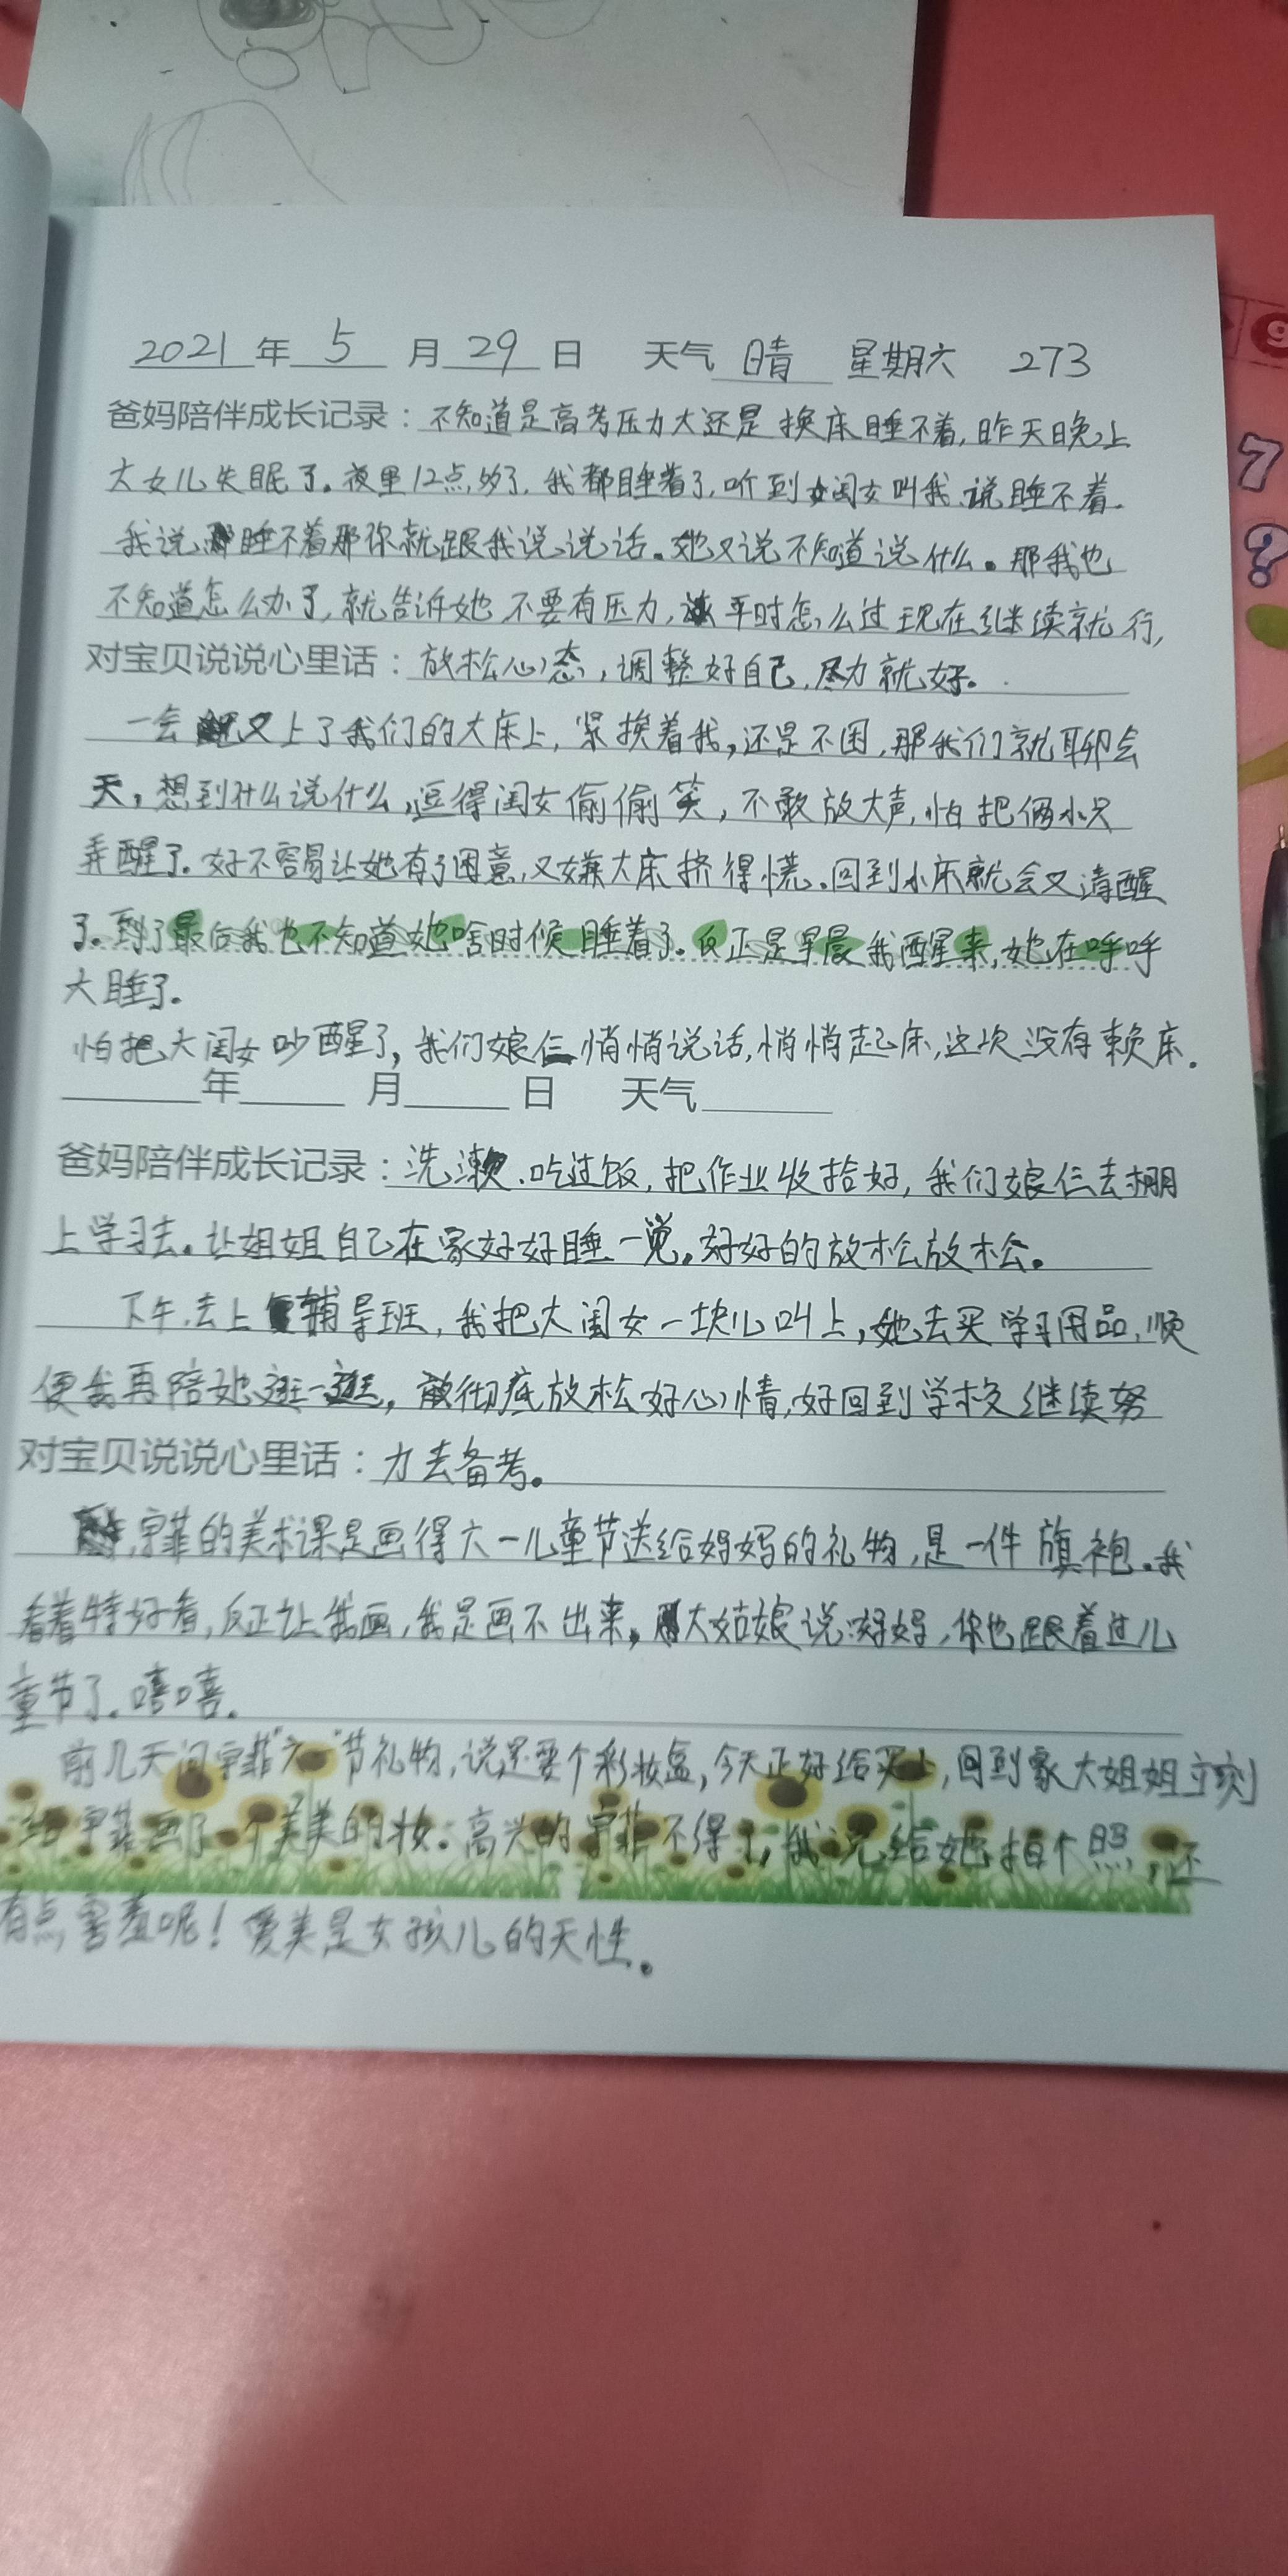 2021年5月29日 天气晴 星期六 273
爸妈陪伴成长记录：不知道是高考压力大还是换床睡不着,昨天晚上
大女儿失眠了。夜里12点多了,我都睡着了,听到闺女叫我,说睡不着.
我说睡不着那你就跟我说说话。她又说不知道说什么。那我也
不知道怎么办了,就告诉她不要有压力,平时怎么过现在继续就行,
对宝贝说说心里话：放松心态,调整好自己,尽力就好。
一会又上了我们的大床上,紧挨着我,还是不困,那我们就聊会
天,想到什么说什么,逗得闺女偷偷笑,不敢放大声,怕把俩小只
弄醒了.好不容易让她有了困意,又嫌大床挤得慌.回到小床就会又清醒
了.到了最后我也不知道她啥时候睡着了.反正是早晨我醒来,她在呼呼
大睡了.
怕把大闺女吵醒了,我们娘仨悄悄说话,悄悄起床,这次没有赖床.
年 月 日 天气
爸妈陪伴成长记录：洗漱.吃过饭,把作业收拾好,我们娘仨去棚
上学习去.让姐姐自己在家好好睡一觉.好好的放松放松。
下午去上辅导班,我把大闺女一块儿叫上,她去买学习用品,顺
便我再陪她逛一逛,彻底放松好心情,好回到学校继续努
对宝贝说说心里话：力去备考。
宇菲的美术课是画得六一儿童节送给妈妈的礼物,是一件旗袍.我
看着特好看,反正让我画,我是画不出来,大姑娘说:好好,你也跟着过儿
童节了.嘻嘻.
前几天问宇菲"六一"节礼物,说是要个彩妆盒,今天正好给买上,回到家大姐姐立刻
给宇菲画了一个美美的妆.高兴的宇菲不得了,我说给她拍个照,还
有点害羞呢!爱美是女孩儿的天性。
7
?
9